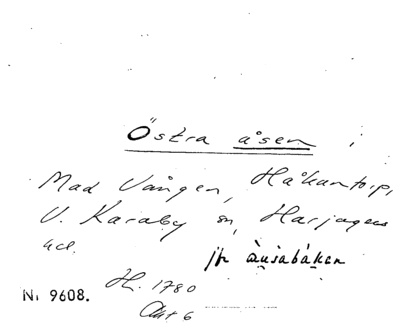 Östra åsen
Mad Vången, Håkantorp,
V. Karaby sn, Harjagers
hd.
jfr åusabáken
H. 1780
Akt 6
Nr 9608.